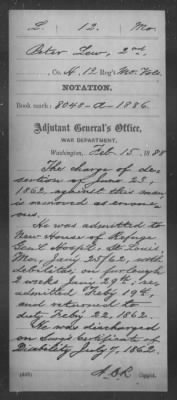 L. 12. Mo.
Peter Low, 2nd.
Co. A, 12 Reg't Mo. Vols.
NOTATION.
Book mark: 8048-A-1886
Adjutant General's Office,
WAR DEPARTMENT,
Washington, Feb. 15, 1888
The charge of de-
sertion of
1862, against this man,
is removed as errone-
ous.
He was admitted to
New House of Refuge
Genl Hospl. St. Louis,
Mo., Jany 25/62, with
debilitas; on furlough
2 weeks Jany 29th; re-
admitted Feby 19th,
and returned to
duty Feby 22, 1862.
He was discharged
on Surg's Certificate of
Disability July 9, 1862.
Copyist.